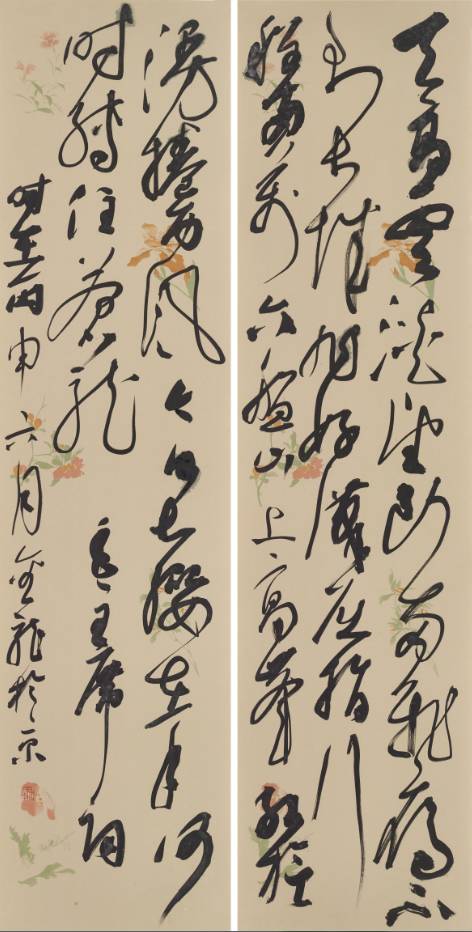 天高云淡望断南飞雁不
到长城非好漢屈指行
程贰万六盘山上高峰红旗
漫捲西风今日长缨在手何
时缚住苍龙 毛主席词
时在丙申六月金龙於京